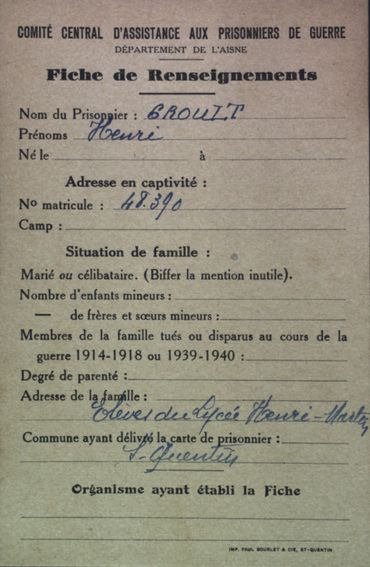 COMITÉ CENTRAL D'ASSISTANCE AUX PRISONNIERS DE GUERRE
DÉPARTEMENT DE L'AISNE
Fiche de Renseignements
Nom du Prisonnier : GROULT
Prénoms Henri
Né le à
Adresse en captivité :
No matricule : 48.390
Camp :
Situation de famille :
Marié ou célibataire. (Biffer la mention inutile).
Nombre d'enfants mineurs :
— de frères et sœurs mineurs :
Membres de la famille tués ou disparus au cours de la
guerre 1914-1918 ou 1939-1940 :
Degré de parenté :
Adresse de la famille :
Elèves du Lycée Henri-Martin
Commune ayant délivré la carte de prisonnier :
St-Quentin
Organisme ayant établi la Fiche
IMP. PAUL BOURLET & CIE, ST-QUENTIN